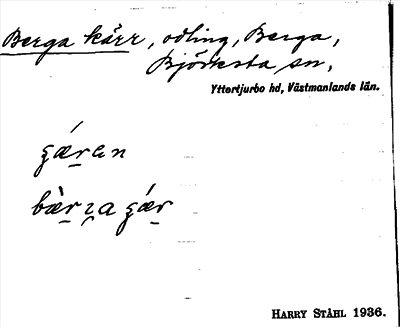 Berga kärr, odling, Berga,
Björksta sn,
Yttertjurbo hd, Västmanlands län.
HARRY STÅHL 1936.